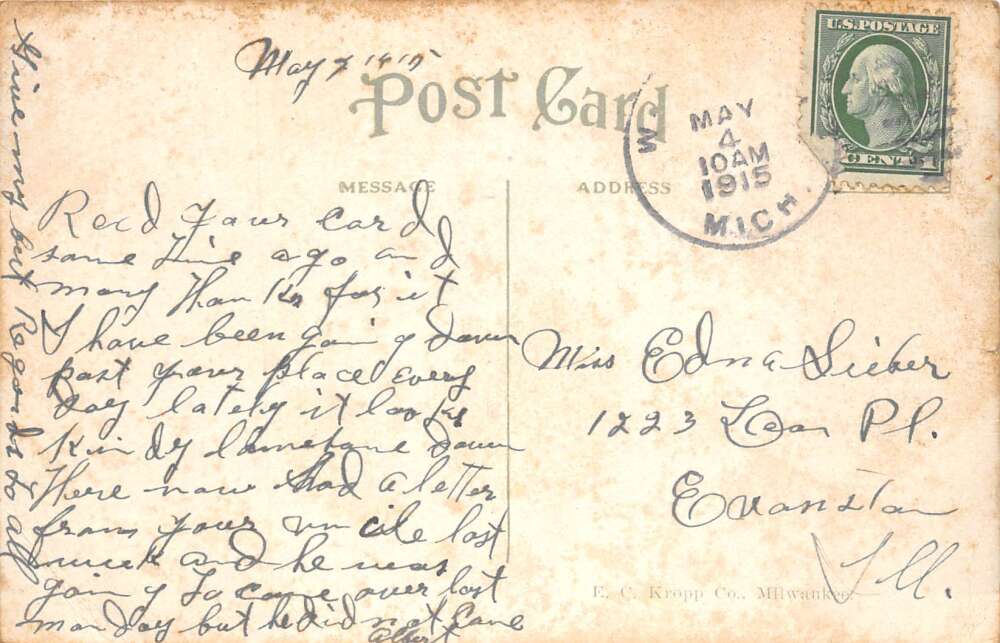 May 1915
Post Card
U.S. POSTAGE
CENT 1
MAY
4
10 AM
1915
MICH.
MESSAGE
ADDRESS
Recd your card
some time ago and
many thanks for it
I have been going down
past your place every
day lately it looks
kindy lonesome down
there now had a letter
from your uncle last
week and he was
going to come over last
monday but he did not come
Albert
Give my best Regards to all
Miss Edna Sieber
1223 Pl.
Evanston
Ill.
E. C. Kropp Co., Milwaukee